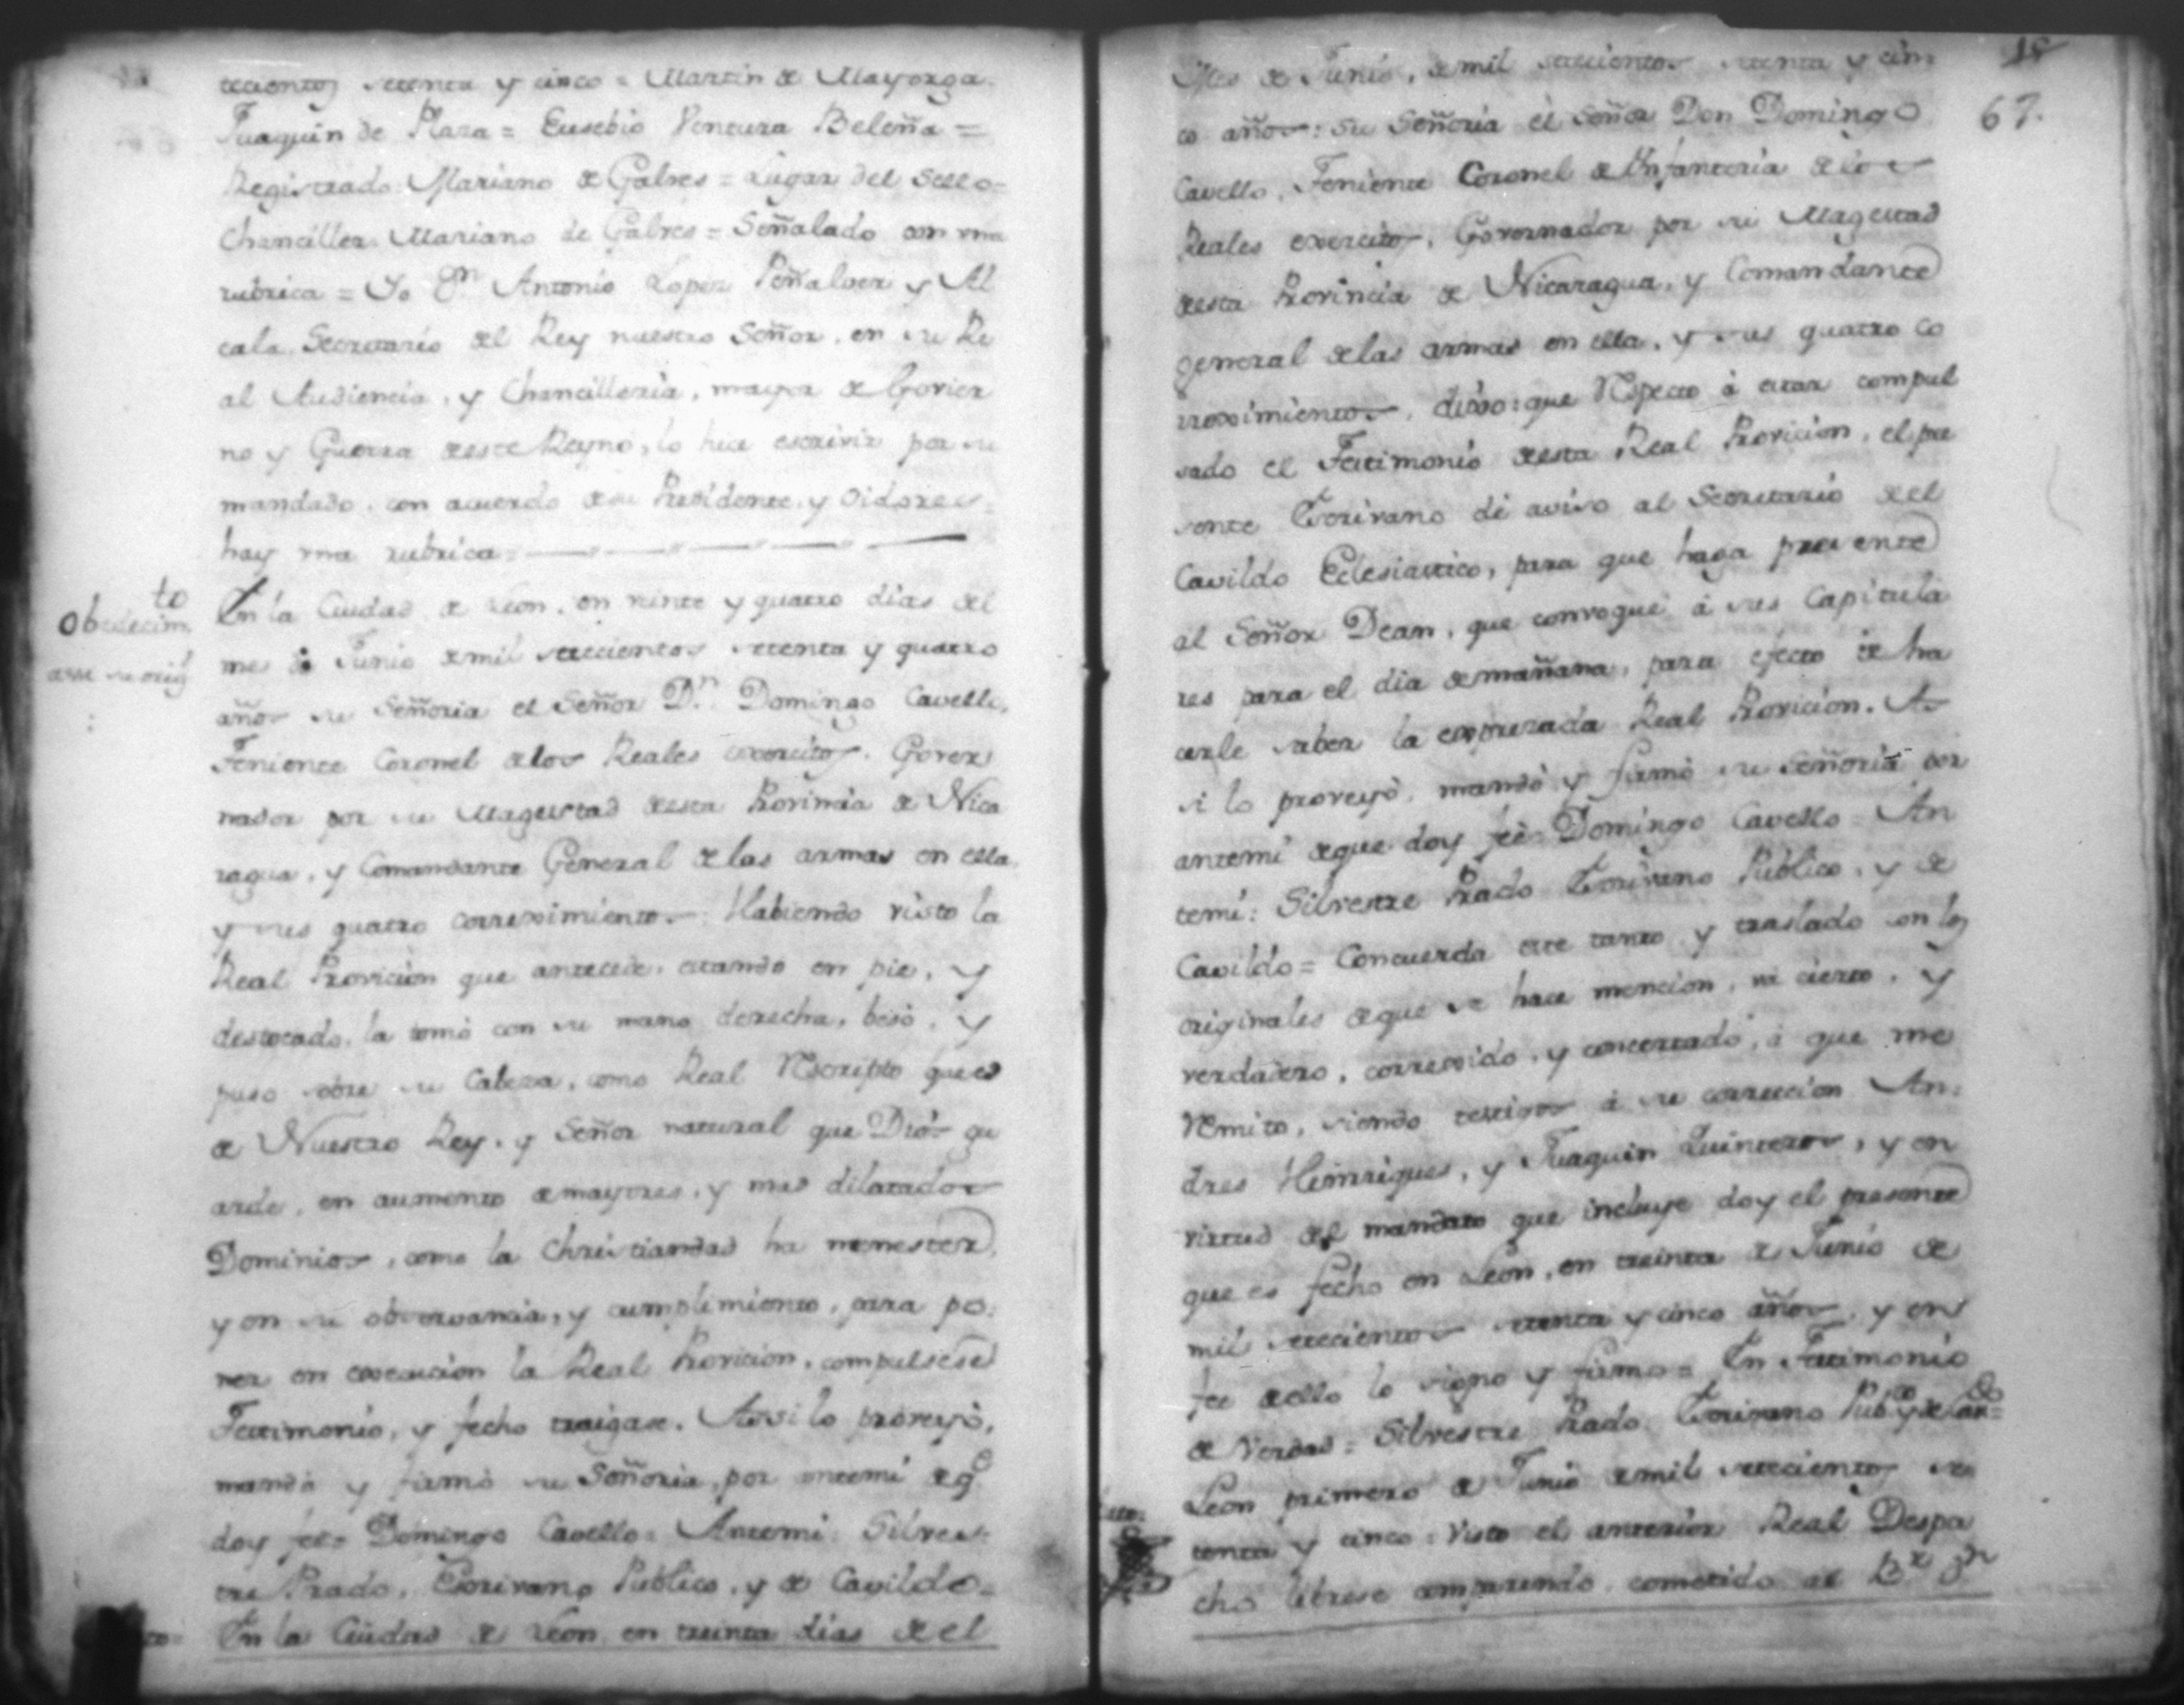 tecientos setenta y cinco = Martin de Mayorga.
Juaquin de Plaza = Eusebio Ventura Beleña =
Registrado: Mariano de Galves = Lugar del Sello =
Chanciller. Mariano de Galves = Señalado con una
rubrica = Yo Dn. Antonio Lopez Peñalver y Al
cala, Secretario del Rey nuestro Señor, en su Re
al Audiencia, y Chancilleria, mayor de Govier
no y Guerra deeste Reyno, lo hice escrivir por su
mandado, con acuerdo desu Presidente, y Oidores =
hay una rubrica =
Obedecimto
En la Ciudad de Leon, en veinte y quatro dias del
mes de Junio demil setecientos setenta y quatro
años su Señoria el Señor Dn. Domingo Cavello,
Teniente Coronel delos Reales exercitos. Gover
nador por su Magestad deesta Provincia de Nica
ragua, y Comandante General delas armas en ella,
y sus quatro correximientos: Habiendo visto la
Real Provicion que antecede, estando en pie, y
destocado, la tomó con su mano derecha, besó, y
puso sobre su Cabeza, como Real Rescripto que es
de Nuestro Rey, y Señor natural que Dios gu
arde, en aumento demayores, y mas dilatados
Dominios, como la Christiandad ha menester,
y en su observancia, y cumplimiento, para po=
ner en execucion la Real Provicion, compulsese
Testimonio, y fecho traigase. Assi lo proveyó,
mandó y firmó su Señoria, por antemi deqe
doy feé= Domingo Cavello= Antemi: Silves=
tre Prado, Escrivano Publico, y de Cavildo=
En la Ciudad de Leon en treinta dias de el
67.
Mes de Junio, demil setecientos setenta y cin
co años: su Señoria el Señor Don Domingo
Cavello, Teniente Coronel de Infanteria delos
Reales exercitos, Governador por su Magestad
deesta Provincia de Nicaragua, y Comandante
general delas armas en ella, y sus quatro co
rreximientos, dixo: que Respecto á estar compul
sado el Testimonio deesta Real Provicion, el pre
sente Escrivano dé aviso al Secretario del
Cavildo Eclesiastico, para que haga presente
al Señor Dean, que convoque á sus Capitula
res para el dia demañana, para efecto de ha
cerle saber la expresada Real Provicion. As
si lo proveyó, mandó y firmó su Señoria por
antemi deque doy feé= Domingo Cavello= An
temi: Silvestre Prado Escrivano Publico, y de
Cavildo= Concuerda este tanto y traslado con los
originales deque se hace mencion, va cierto, y
verdadero, correxido, y concertado, á que me
Remito, siendo testigos á su correccion An=
dres Henriques, y Juaquin Quinteros, y en
virtud del mandato que incluye doy el presente
que es fecho en Leon, en treinta de Junio de
mil setecientos setenta y cinco años, y en
fee deello lo signo y firmo= En Testimonio
de Verdad= Silvestre Prado Escrivano Pubco. y de Cavdo=
Leon primero de Junio demil setecientos se
tenta y cinco= Visto el anterior Real Despa
cho librese cometido al Br. Dn